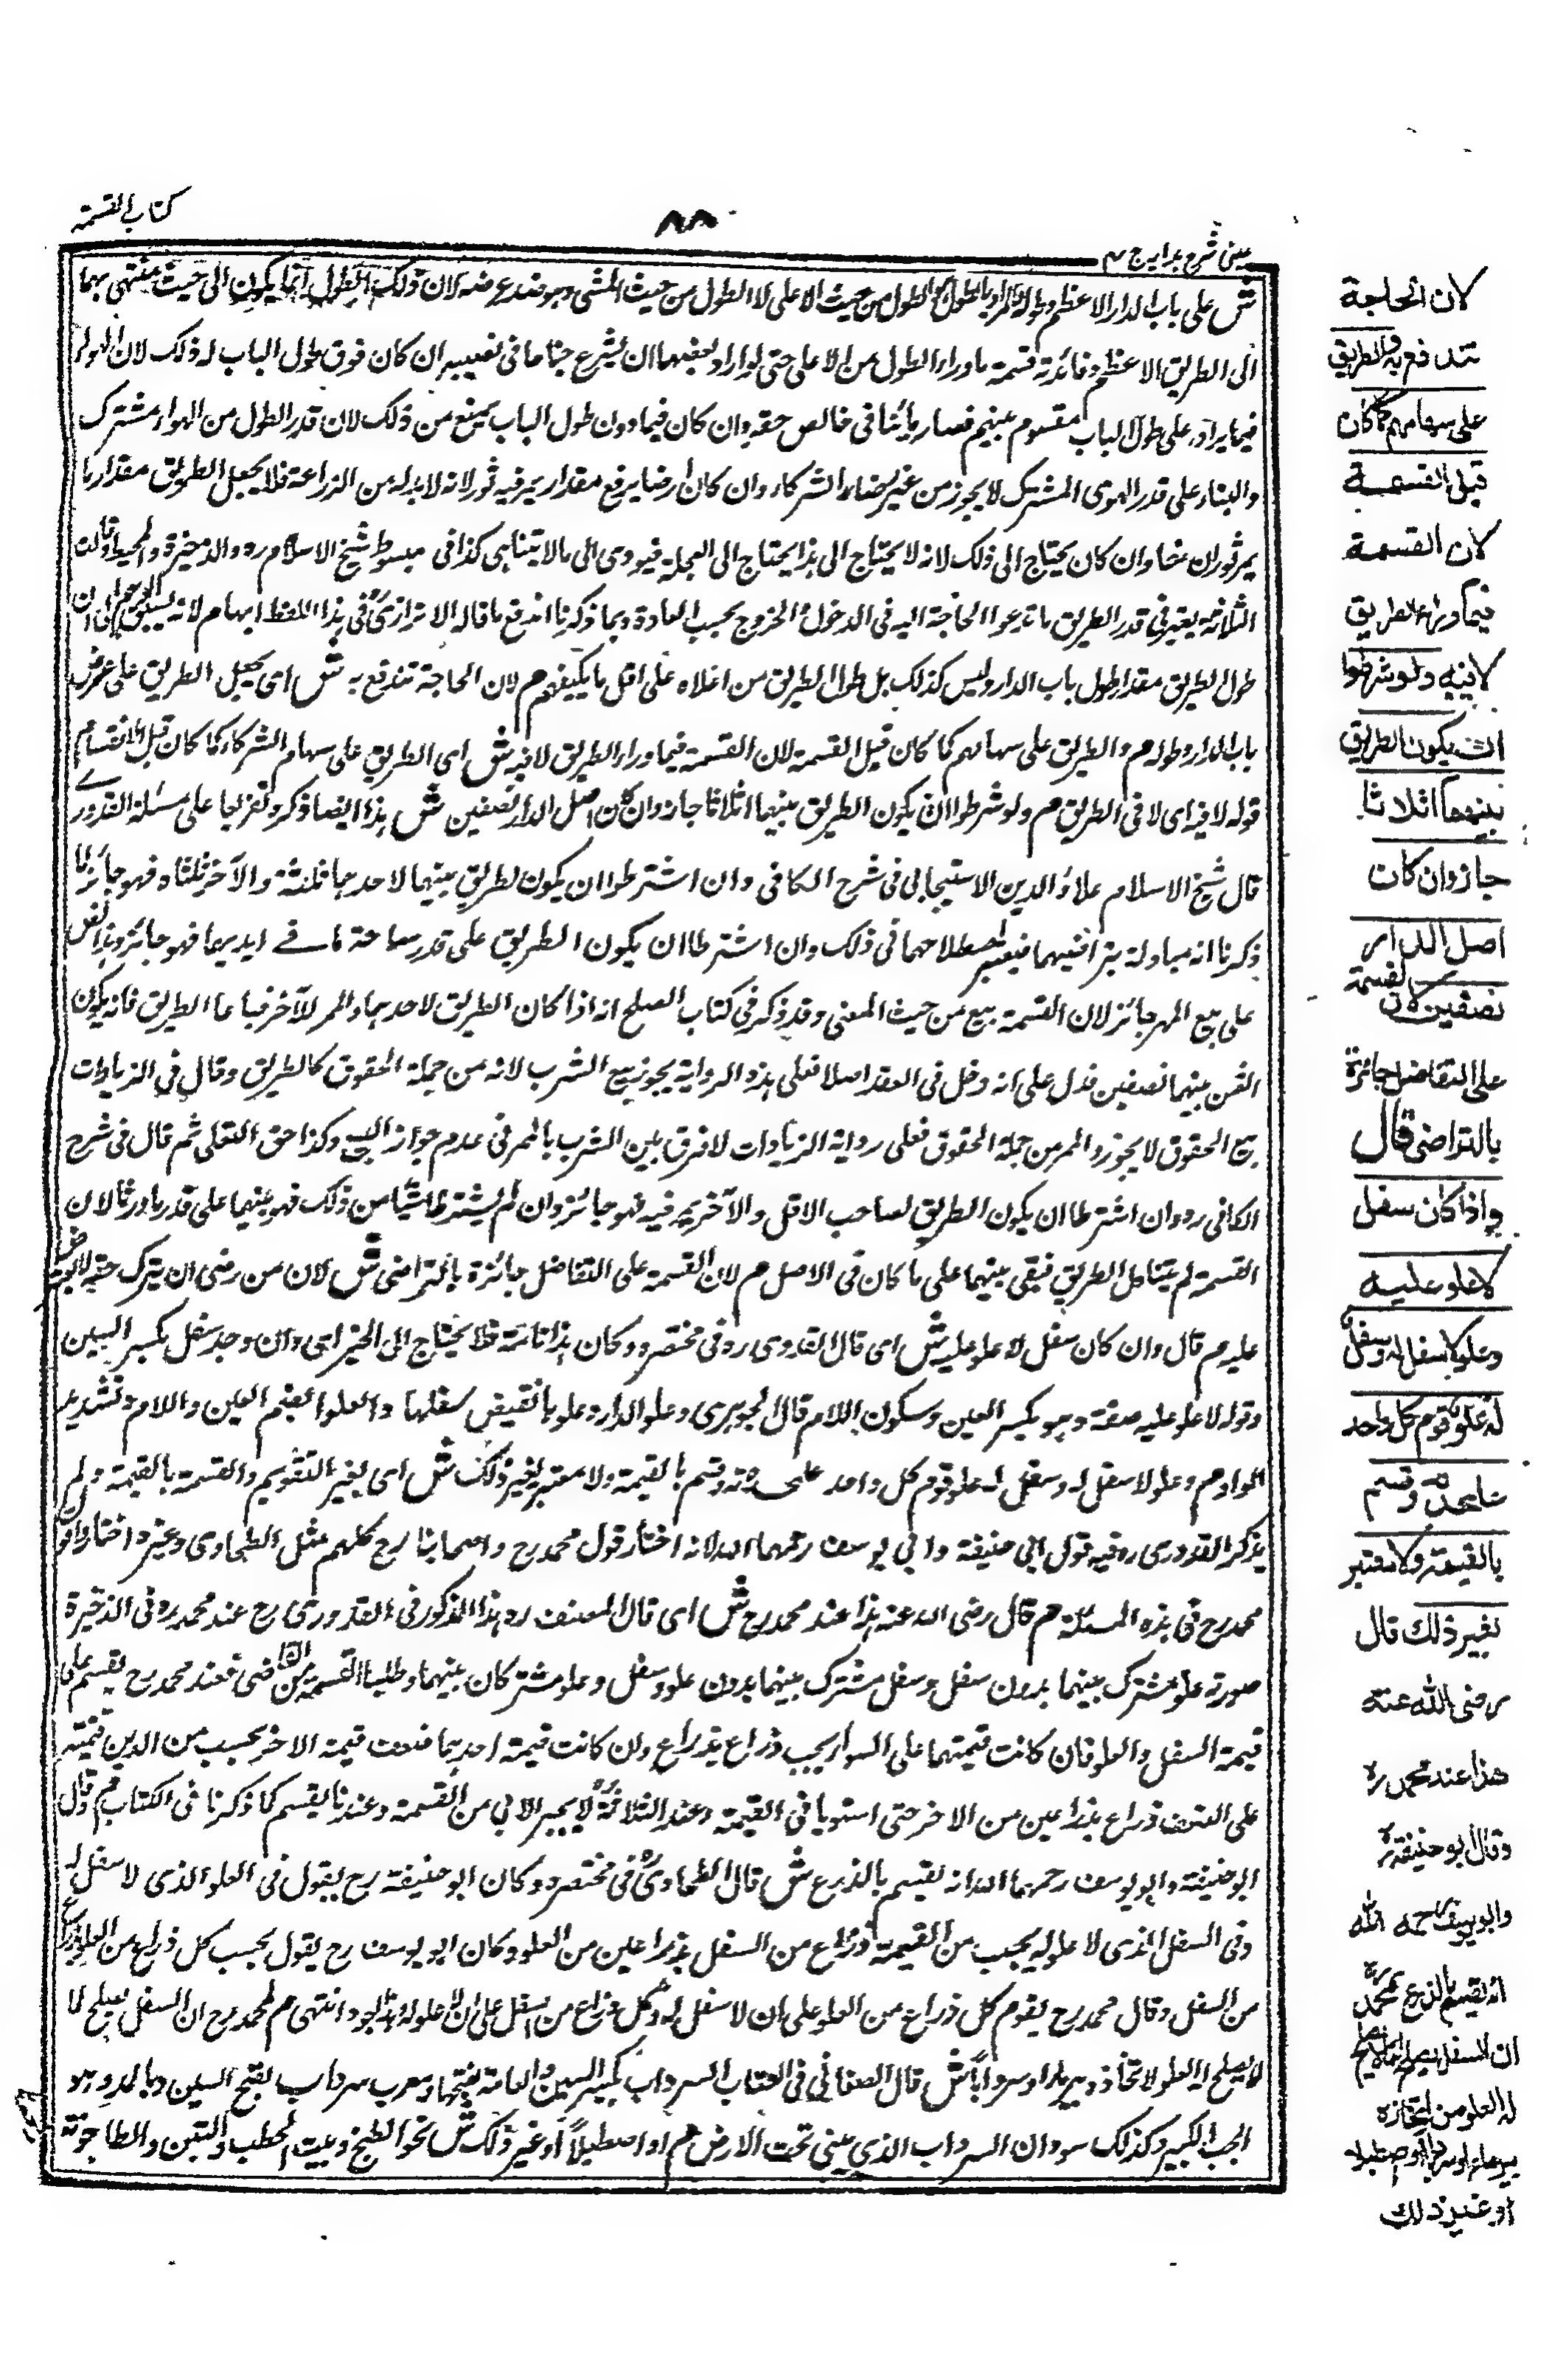 كتاب القسمة
٨٨
عينى شرح هدايه ج ٣
ش على باب الدار الاعظم وطوله المراد بالطول الطول من حيث الاعلى لا الطول من حيث المشى وهو ضد عرضه لان ذلك الطول انما يكون الى حيث ينتهى بهما
الى الطريق الاعظم وفائدته قسمة ما وراء الطول من الاعلى حتى لو اراد بعضهما ان يشرع جناحا فى نصيبه ان كان فوق طول الباب له ذلك لان الهواء
فيما يراد على طول الباب مقسوم بينهم فصار بائنا فى خالص حقه وان كان فيما دون طول الباب يمنع من ذلك لان قدر الطول من الهواء مشترك
والبناء على قدر الهوى المشترك لا يجوز من غير رضاء الشركاء وان كان ارضا يرفع مقدار يمر فيه ثور لانه لابد له من الزراعة فلا يجعل الطريق مقدار ما
يمر ثوران معا وان كان يحتاج الى ذلك لانه لا يحتاج الى هذا يحتاج الى العجلة فيودى الى مالا يتناهى كذا فى مبسوط شيخ الاسلام ره والذخيرة والمحيط وقالت
الثلاثة يعتبر فى قدر الطريق ما تدعوا الحاجة اليه فى الدخول والخروج بحسب العادة وبما ذكرنا اندفع ما قاله الاترازى فى هذا اللفظ ابهام لانه يسبق الوهم الى ان
طول الطريق مقدار طول باب الدار وليس كذلك بل طول الطريق من اعلاه على اقل ما يكفيهم م لان الحاجة تندفع به ش اى يجعل الطريق على عرض
باب الدار وطوله م والطريق على سهامهم كما كان قبل القسمة لان القسمة فيما وراء الطريق لا فيه ش اى الطريق على سهام الشركاء كما كان قبل الانقسام
قوله لا فيه اى لا فى الطريق م ولو شرطوا ان يكون الطريق بينهما اثلاثا جاز وان كان اصل الدار نصفين ش هذا ايضا ذكره تفريعا على مسئلة القدورى
قال شيخ الاسلام علاؤ الدين الاسبيجابى فى شرح الكافى وان اشترطوا ان يكون لطريق بينهما لاحدهما ثلثه والآخر ثلثاه فهو جائز لما
ذكرنا انه مبادلة بتراضيهما فيعتبر اصطلاحهما فى ذلك وان اشترطا ان يكون الطريق على قدر مساحة ما فى ايديهما فهو جائز وهذا نص
على بيع الممر جائز لان القسمة بيع من حيث المعنى وقد ذكر فى كتاب الصلح انه اذا كان الطريق لاحدهما والممر للآخر فباعا الطريق فانه يكون
الثمن بينهما نصفين فدل على انه دخل فى العقد اصلا فعلى هذه الرواية يجوز بيع الشرب لانه من جملة الحقوق كالطريق وقال فى الزيادات
بيع الحقوق لا يجوز والممر من جملة الحقوق فعلى رواية الزيادات لا فرق بين الشرب بالممر فى عدم جواز البيع وكذا حق التعلى ثم قال فى شرح
الكافى ره وان اشترطا ان يكون الطريق لصاحب الاقل والآخر يمر فيه فهو جائز وان لم يشترطا شيئا من ذلك فهو بينهما على قدر ما ورثا لان
القسمة لم يتناول الطريق فبقى بينهما على ما كان فى الاصل م لان القسمة على التفاضل جائزة بالتراضى ش لان من رضى ان يترك حقه لا يعترض
عليه م قال وان كان سفل لا علو عليه ش اى قال القدورى ره فى مختصره وكان هذا تامة فلا يحتاج الى الخبر اى وان وجد سفل بكسر السين
وقوله لا علو عليه صفة وهو بكسر العين وسكون اللام قال الجوهرى وعلو الدار وعلوها نقيض سفلها والعلوا بضم العين واللام وتشديد
الواو م وعلو لا سفل له وسفل له علو قوم كل واحد على حدته وقسم بالقيمة ولا معتبر بغير ذلك ش اى بغير التقويم والقسمة بالقيمة ولم
يذكر القدورى ره فيه قول ابى حنيفة وابى يوسف رحمهما الله لانه اختار قول محمد رح واصحابنا رح كلهم مثل الطحاوى وغيره اختاروا قول
محمد رح فى هذه المسئلة م قال رضى الله عنه هذا عند محمد رح ش اى قال المصنف ره هذا المذكور فى القدورى رح عند محمد ره وفى الذخيرة
صورته علو مشترك بينهما بدون سفل وسفل مشترك بينهما بدون علو وسفل وعلو مشترك كان بينهما وطلبا القسمة من القاضى فعند محمد رح يقسم على
قيمة السفل والعلو فان كانت قيمتهما على السواء يحسب ذراع بذراع وان كانت قيمة احدهما ضعف قيمة الاخر يحسب من الذين قيمته
على الضعف ذراع بذراعين من الاخر حتى استويا فى القيمة وعند الثلاثة لا يجبر الآبى من القسمة وعندنا يقسم كما ذكرنا فى الكتاب م وقال
ابو حنيفة وابو يوسف رحمهما الله انه يقسم بالذرع ش قال الطحاوى فى مختصره وكان ابو حنيفة رح يقول فى العلو الذى لا سفل له
وفى السفل الذى لا علو له يحسب من القيمة ذراع من السفل بذراعين من العلو وكان ابو يوسف رح يقول يحسب كل ذراع من العلو بذراع
من السفل وقال محمد رح يقوم كل ذراع من العلو على ان لا سفل له وكل ذراع من السفل على ان لا علو له وهذا اجود انتهى م لمحمد رح ان السفل يصلح لما
لا يصلح له العلو لاتخاذه بير ماء او سردابا ش قال الصغانى فى العباب السرداب بكسر السين والعامة بفتحها ومعرب سرداب بفتح السين وبالمد وهو
الجب الكبير وكذلك سودان السرداب الذي يبنى تحت الارض م او اصطبلا او غير ذلك ش نحو الطبخ وبيت الحطب والتبن والطاحونة
لان الحاجة
تندفع به والطريق
على سهامهم كما كان
قبل القسمة
لان القسمة
فيما وراء الطريق
لا فيه ولو شرطوا
ان يكون الطريق
بينهما اثلاثا
جاز وان كان
اصل الدار
نصفين لان القسمة
على التفاضل جائزة
بالتراضى قال
واذا كان سفل
لا علو عليه
وعلو لا سفل له وسفل
له علو قوم كل واحد
على حدته وقسم
بالقيمة ولا معتبر
بغير ذلك قال
رضى الله عنه
هذا عند محمد ره
وقال ابو حنيفة ره
وابو يوسف رحمه الله
انه يقسم بالذرع لمحمد ره
ان السفل يصلح لما لا يصلح
له العلو من اتخاذه
بير ماء او سردابا او اصطبلا
او غير ذلك